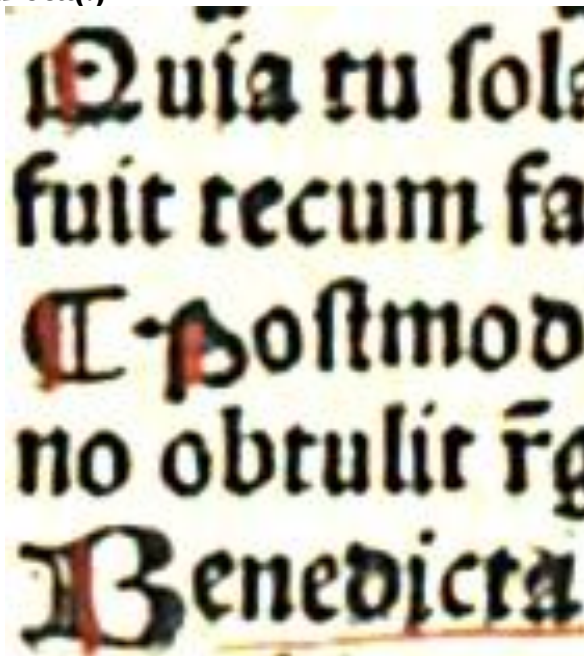 Quia tu sola
fuit tecum fa
¶ Poſtmod
no obtulit r̄g
Benedicta